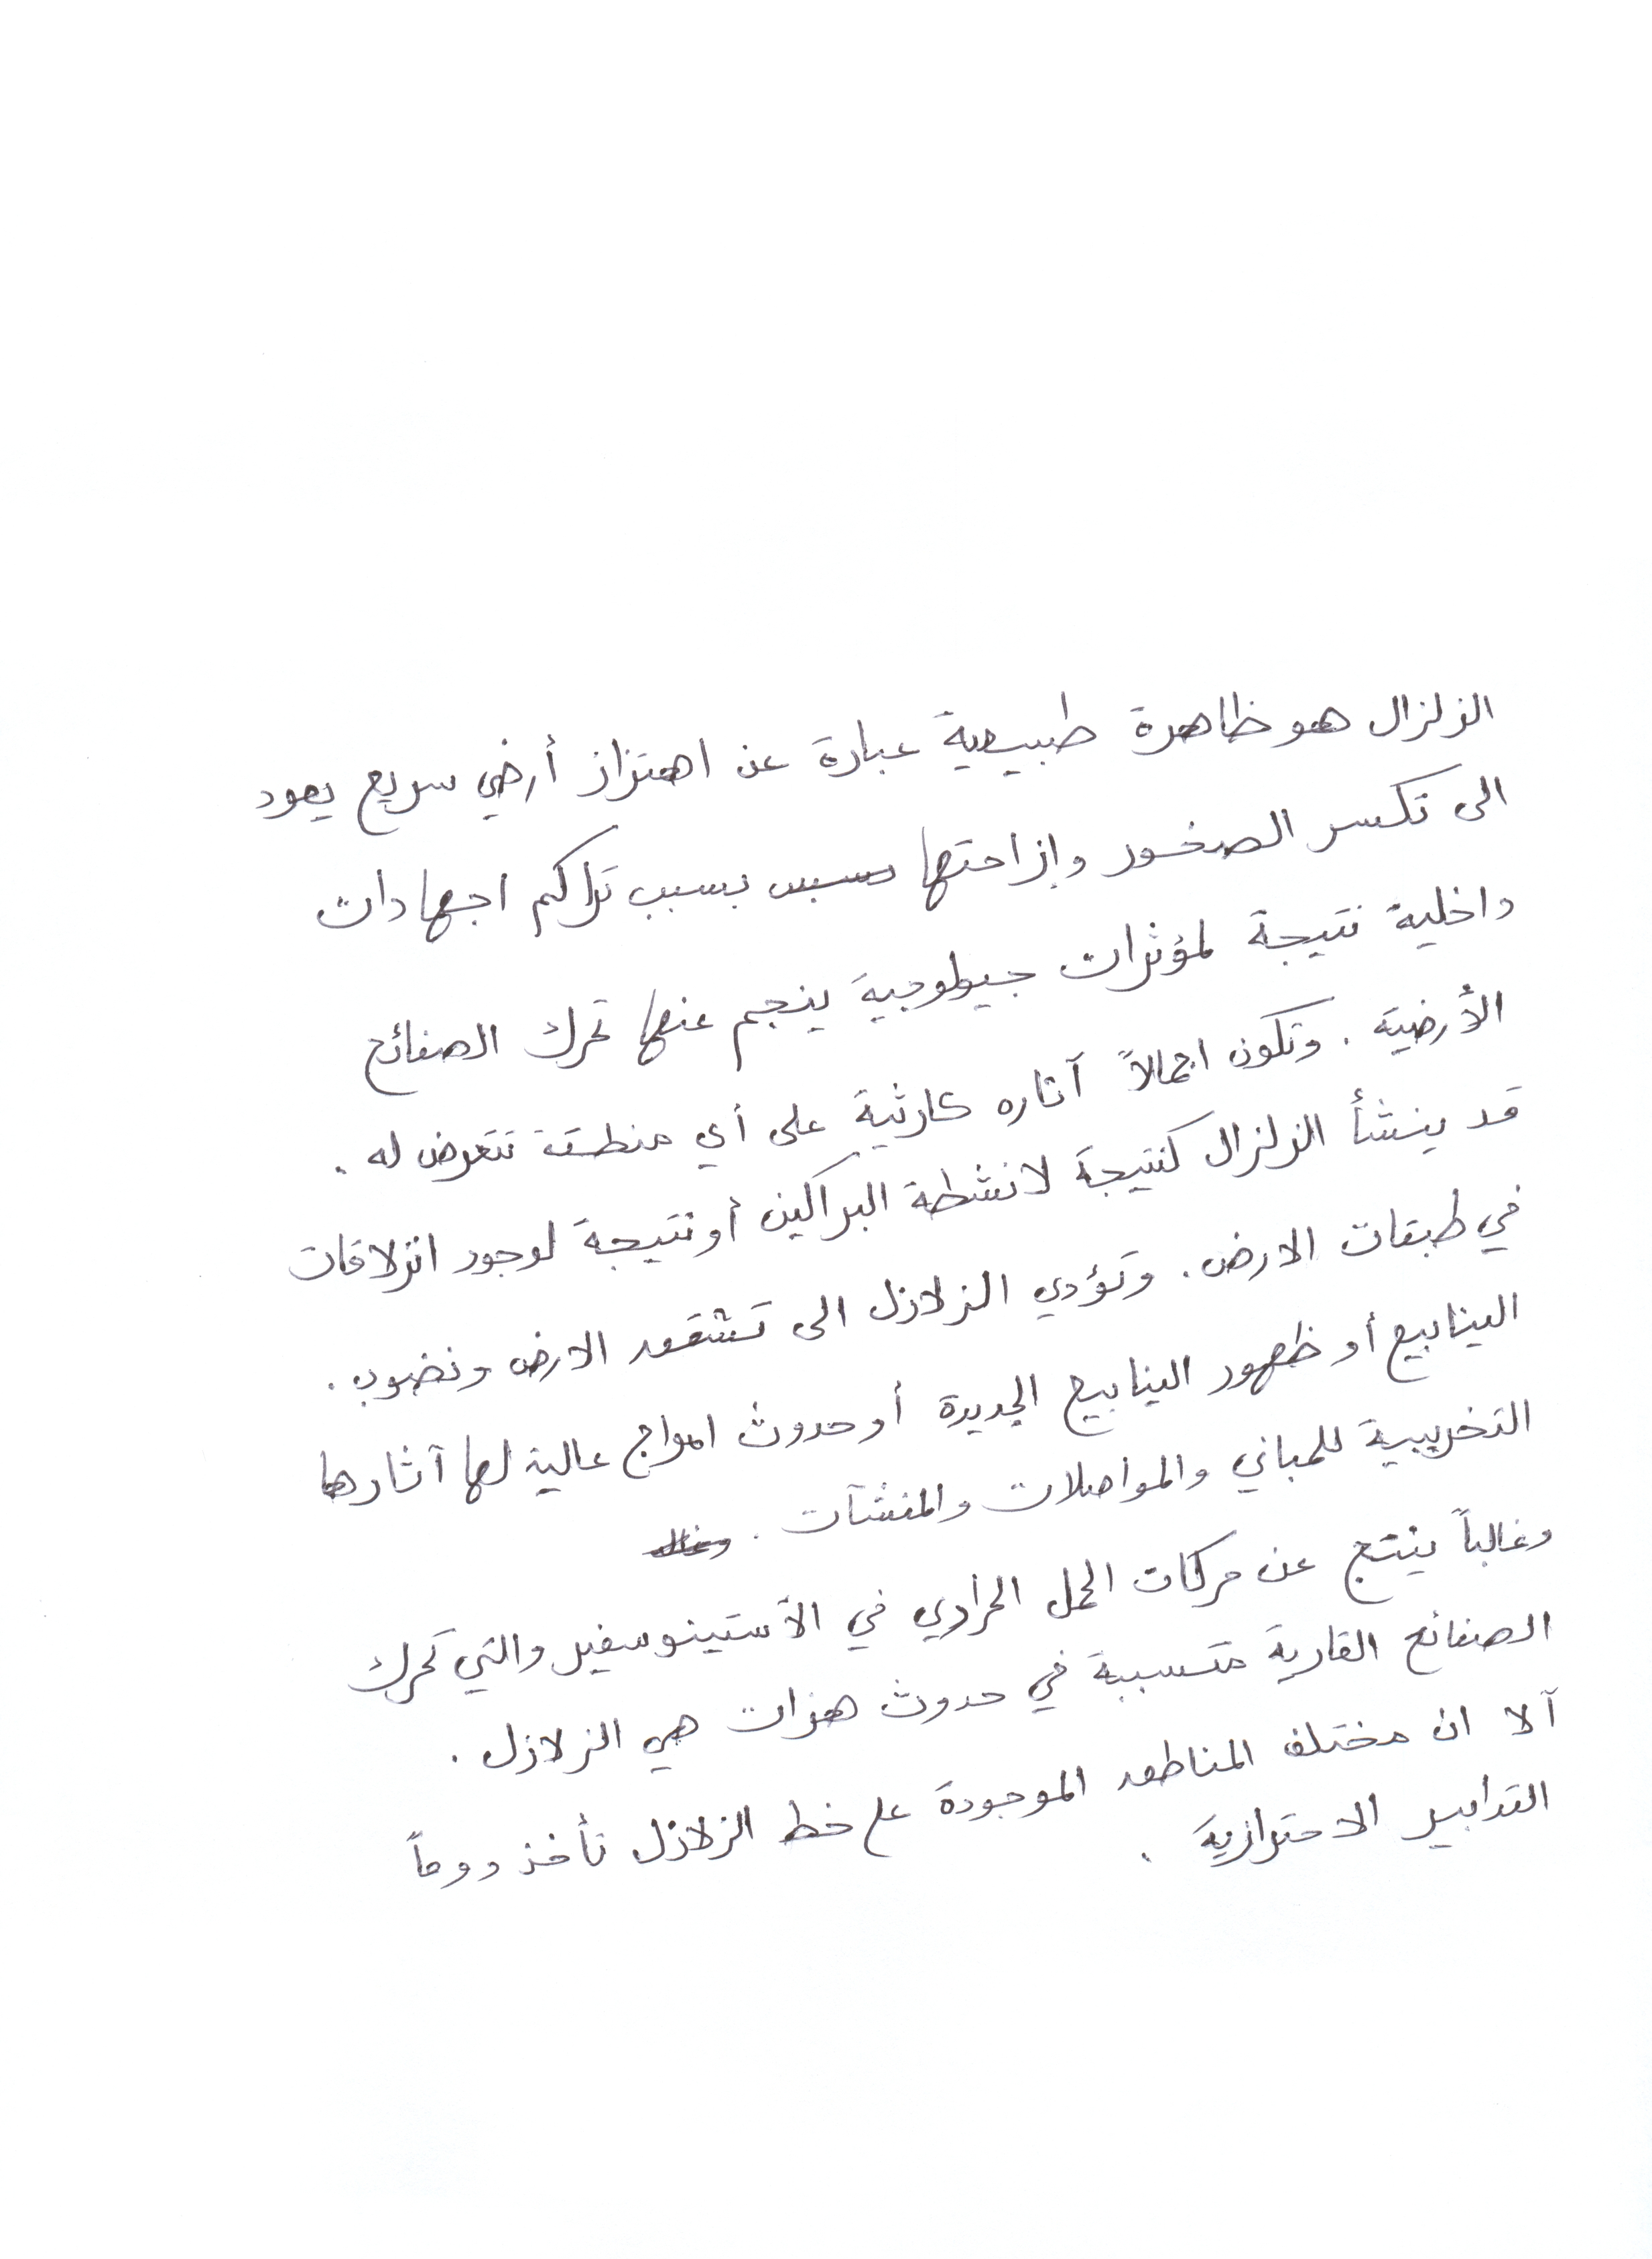 الزلزال هو ظاهرة طبيعية عبارة عن اهتزاز أرضي سريع يعود
الى تكسر الصخور وإزاحتها بسبب تراكم اجهادات
داخلية نتيجة لمؤثرات جيولوجية ينجم عنها تحرك الصفائح
الأرضية . وتكون اجمالاً آثاره كارثية على أي منطقة تتعرض له .
قد ينشأ الزلزال كنتيجة لانشطة البراكين أو نتيجة لوجود انزلاقات
في طبقات الارض . وتؤدي الزلازل الى تشقق الارض ونضوب .
الينابيع أو ظهور الينابيع الجديدة أو حدوث امواج عالية لها آثارها
التخريبية للمباني والمواصلات والمنشآت .
وغالباً ينتج عن حركات الحمل الحراري في الأستينوسفير والتي تحرك
الصفائح القارية متسببة في حدوث هزات هي الزلازل .
آلا ان مختلف المناطق الموجودة على خط الزلازل تأخذ دوماً
التدابير الاحترازية .